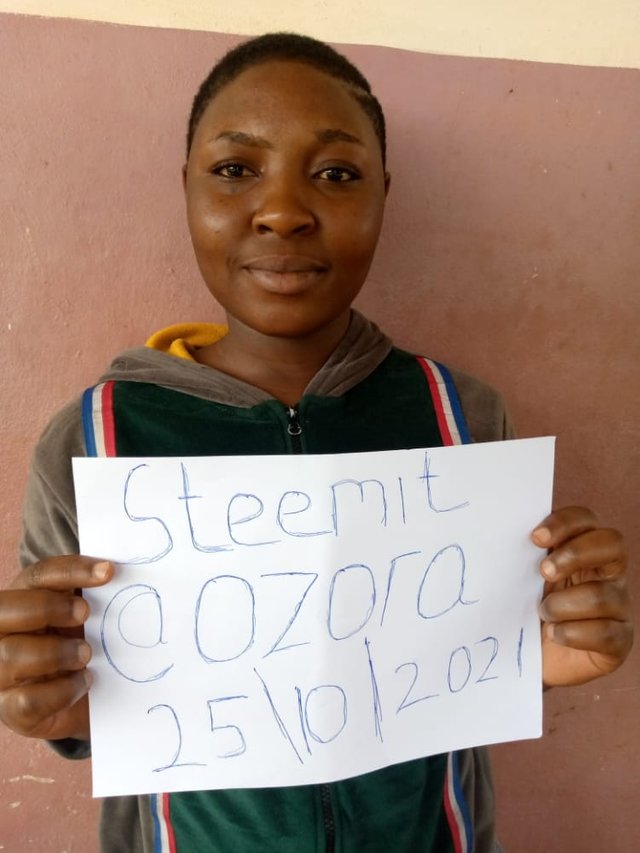 Steemit
@ozora
25\10|2021